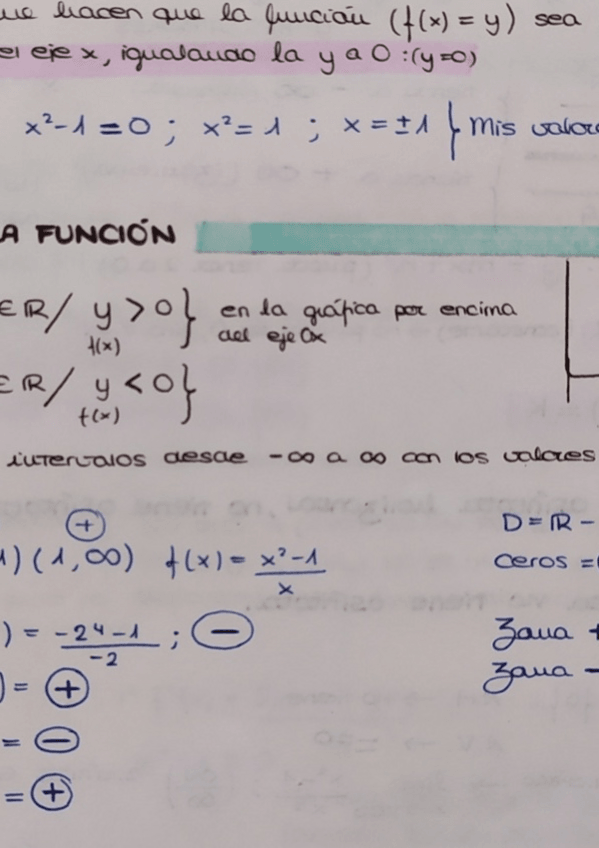 que hacen que la función (f(x) = y) sea
el eje x, igualando la y a 0 : (y=0)
x²-1 = 0 ; x² = 1 ; x = ±1 } Mis valore
A FUNCIÓN
∈ ℝ / y > 0 } en la gráfica por encima
f(x) del eje Ox
∈ ℝ / y < 0 }
f(x)
intervalos desde -∞ a ∞ con los valores
+
1) (1, ∞) f(x) = x²-1 / x
D = ℝ -
ceros =
) = -2⁴-1 / -2 ; -
Zona +
) = +
Zona -
= -
= +